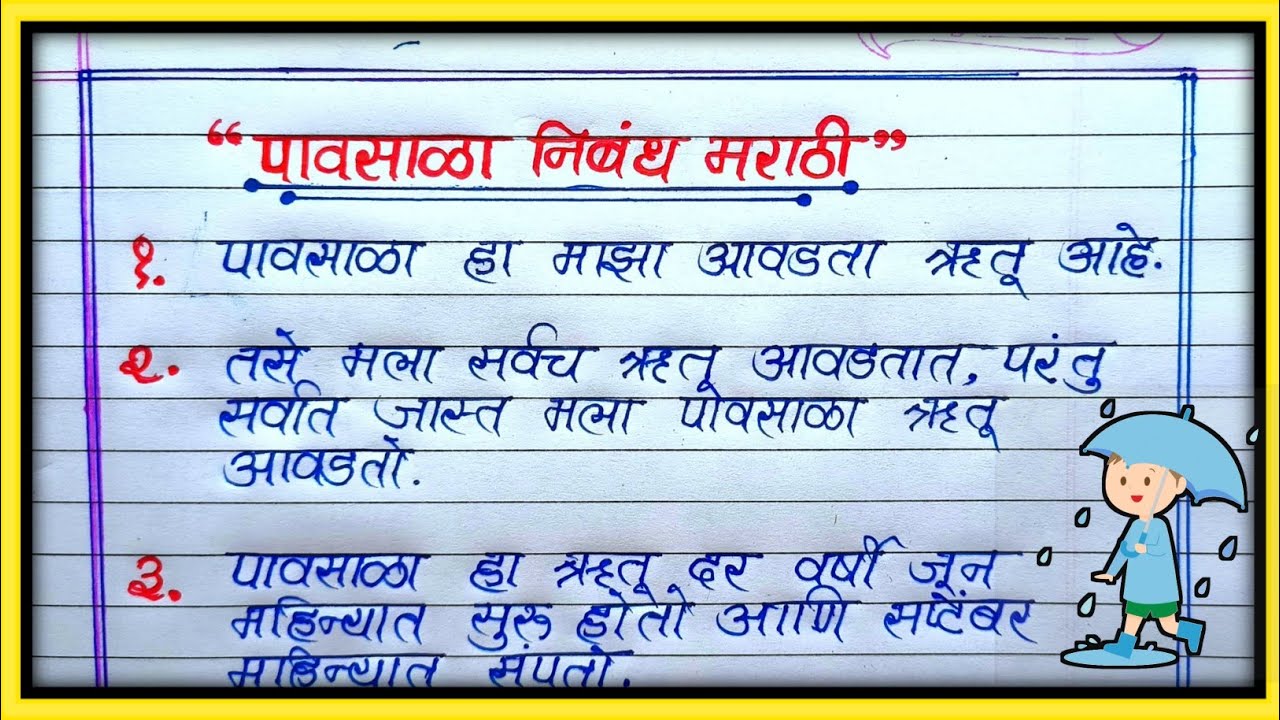 “पावसाळा निबंध मराठी”
१. पावसाळा हा माझा आवडता ऋतू आहे.
२. तसे मला सर्वच ऋतू आवडतात, परंतु
सर्वात जास्त मला पावसाळा ऋतू
आवडतो.
३. पावसाळा हा ऋतू दर वर्षी जून
महिन्यात सुरु होतो आणि सप्टेंबर
महिन्यात संपतो.